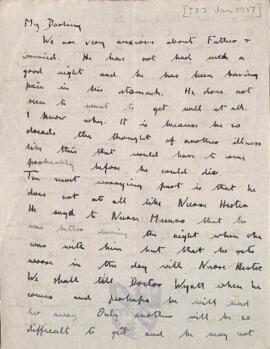 [?27 Jan 1917]
My Darling
We are very anxious about Father &
worried. He has not had such a
good night and he has been having
pain in his stomach. He does not
seem to want to get well at all.
I know why. It is because he so
dreads the thought of another illness
like this that would have to come
probably before he could die.
The most worrying part is that he
does not at all like Nurse Hester
He says to Nurse Munro that he
was better during the night when she
was with him but that he gets
worse in the day with Nurse Hester.
We shall tell Doctor Wyatt when he
comes and perhaps he will send
her away. Only another will be so
difficult to get and he may not